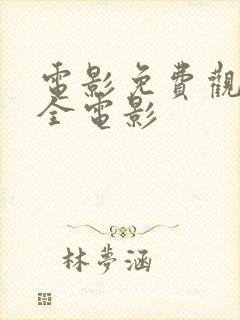 電影免費觀
全電影
林夢涵